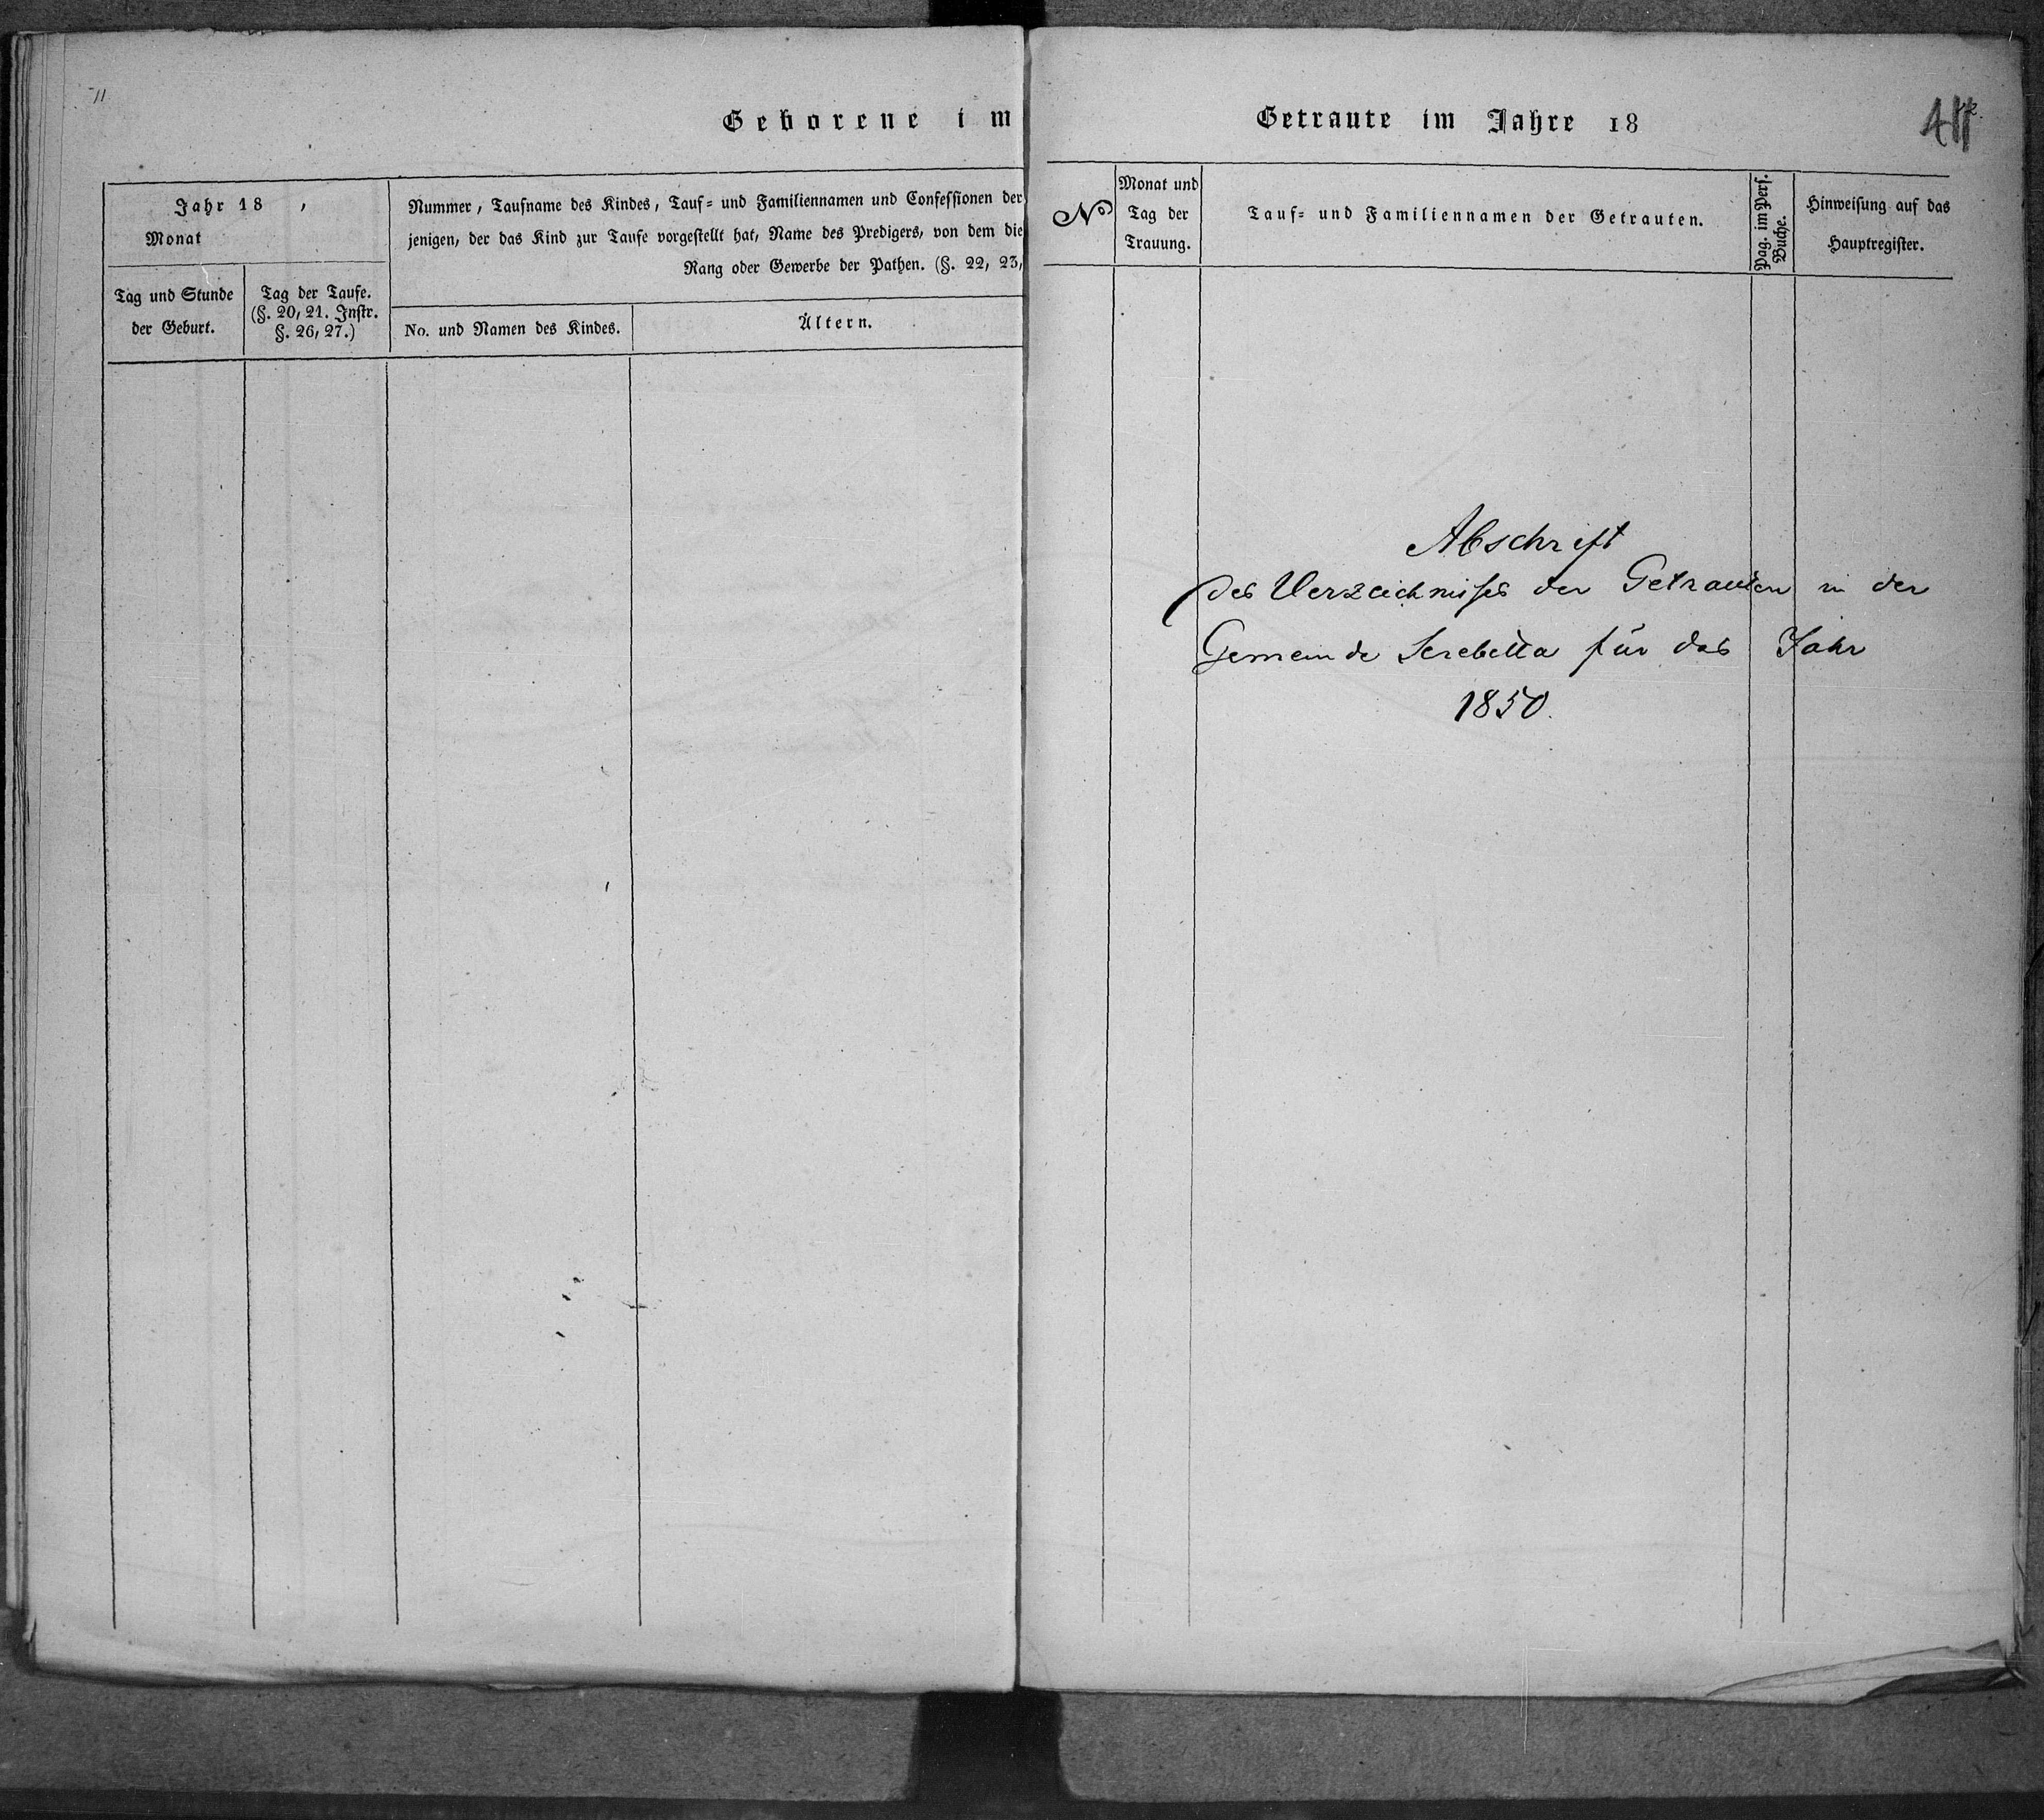 Geborene im
Jahr 18 ,
Monat
Nummer, Taufname des Kindes, Tauf- und Familiennamen und Confessionen der
jenigen, der das Kind zur Taufe vorgestellt hat, Name des Predigers, von dem die
Rang oder Gewerbe der Pathen. (§. 22, 23,
Tag und Stunde
der Geburt.
Tag der Taufe.
(§. 20, 21. Instr.
§. 26, 27.)
No. und Namen des Kindes.
Ältern.
Getraute im Jahre 18
No
Monat und
Tag der
Trauung.
Tauf- und Familiennamen der Getrauten.
Pag. im Pers.
Buche.
Hinweisung auf das
Hauptregister.
Abschrift
des Verzeichnisses der Getrauten in der
Gemeinde Serebetta für das Jahr
1850.